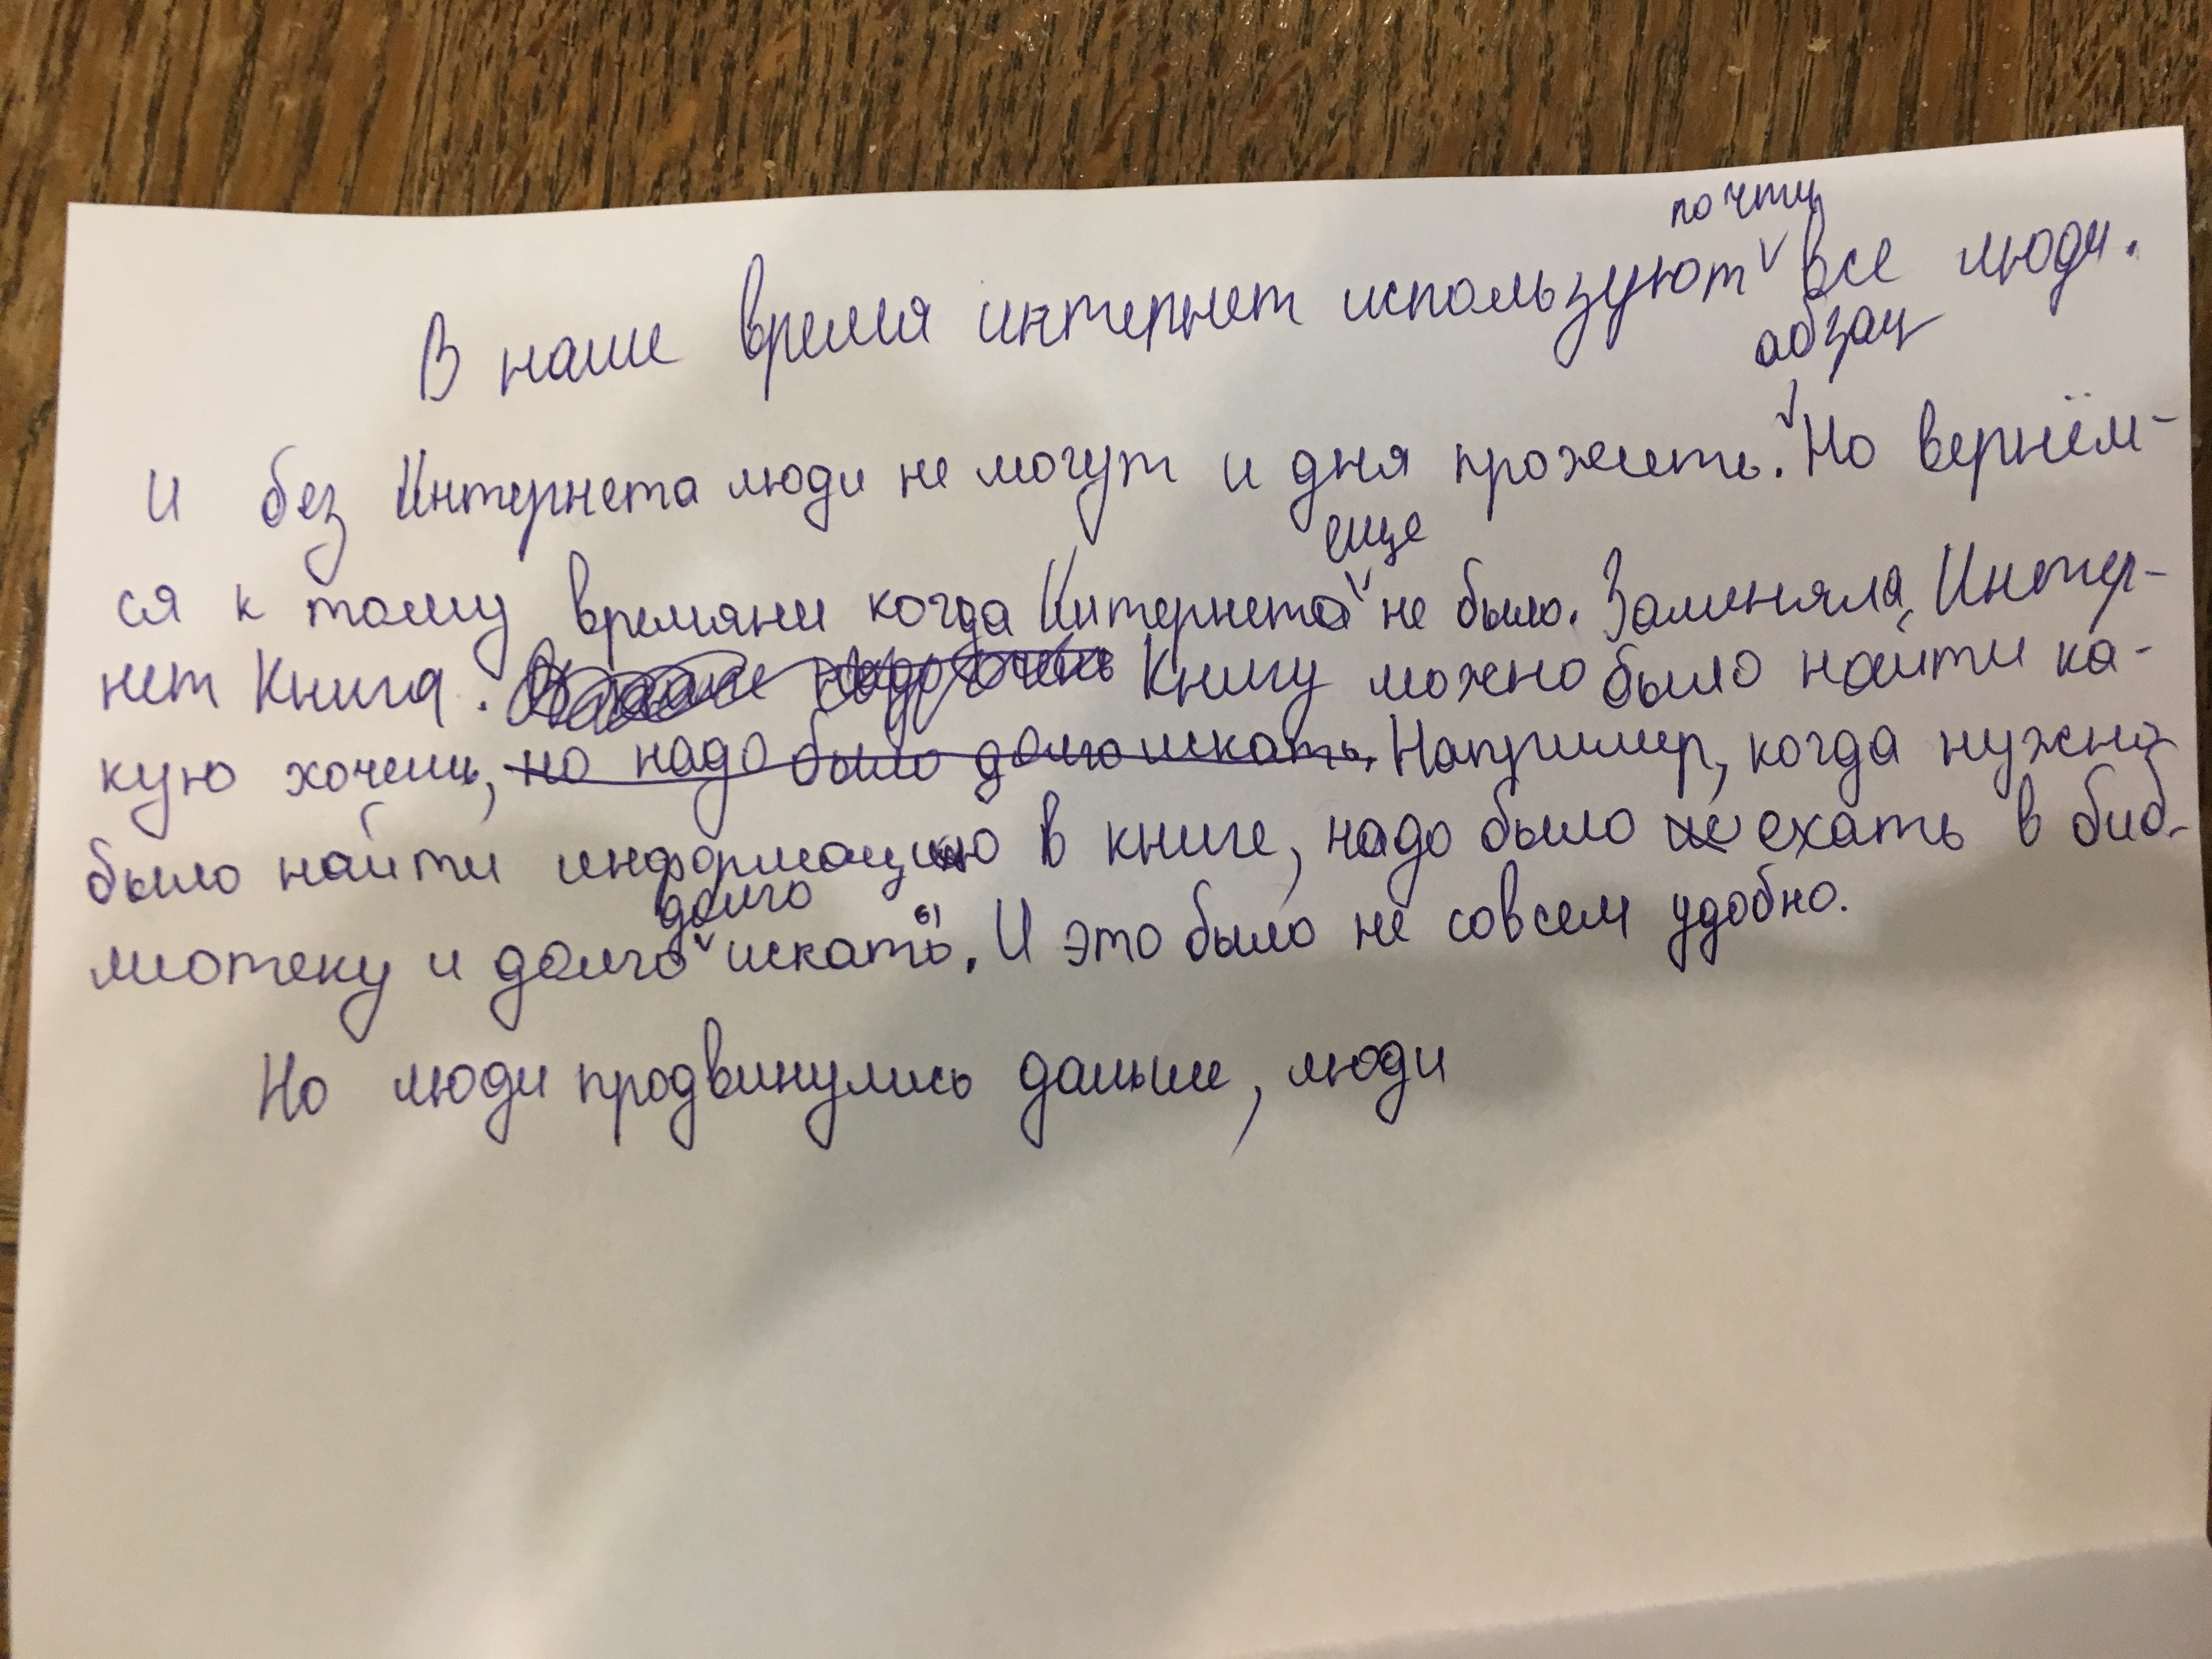 почти
В наше время интернет используют все люди.
абзац
И без Интернета люди не могут и дня прожить. Но вернём-
еще
ся к тому времяни когда Интернета не было. Заменяла Интер-
нет Книга. Книгу можно было найти ка-
кую хочешь, но надо было долго искать. Например, когда нужно
было найти информацию в книге, надо было ехать в биб-
долго
лиотеку и долго искать. И это было не совсем удобно.
Но люди продвинулись дальше, люди